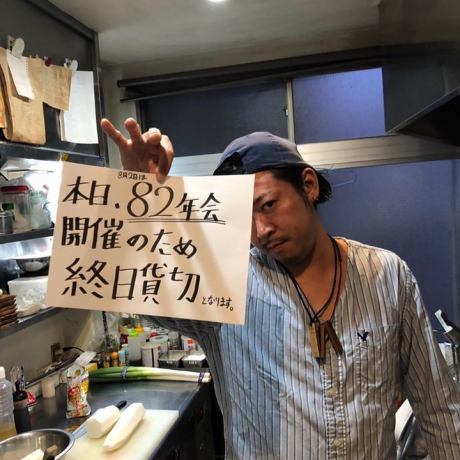 8月2日は
本日、82年会
開催のため
終日貸切となります。